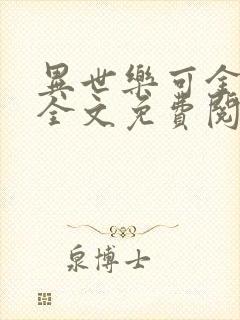 異世樂可全
全文免費閱
泉博士